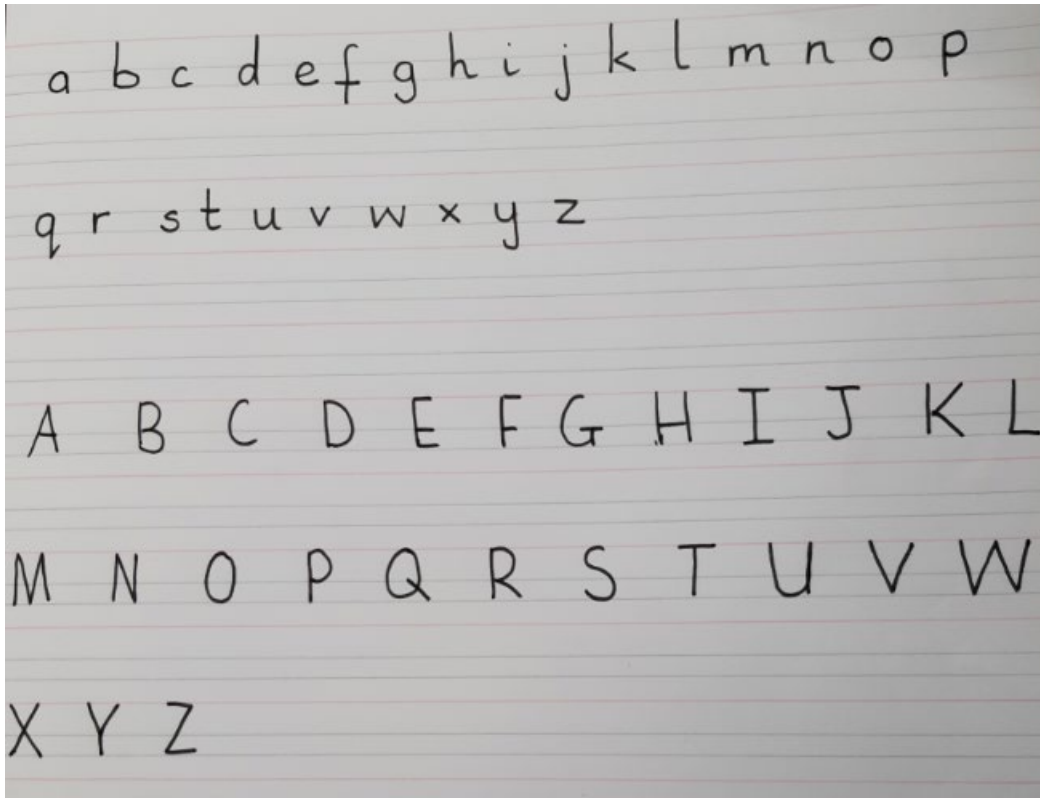 a b c d e f g h i j k l m n o p
q r s t u v w x y z
A B C D E F G H I J K L
M N O P Q R S T U V W
X Y Z